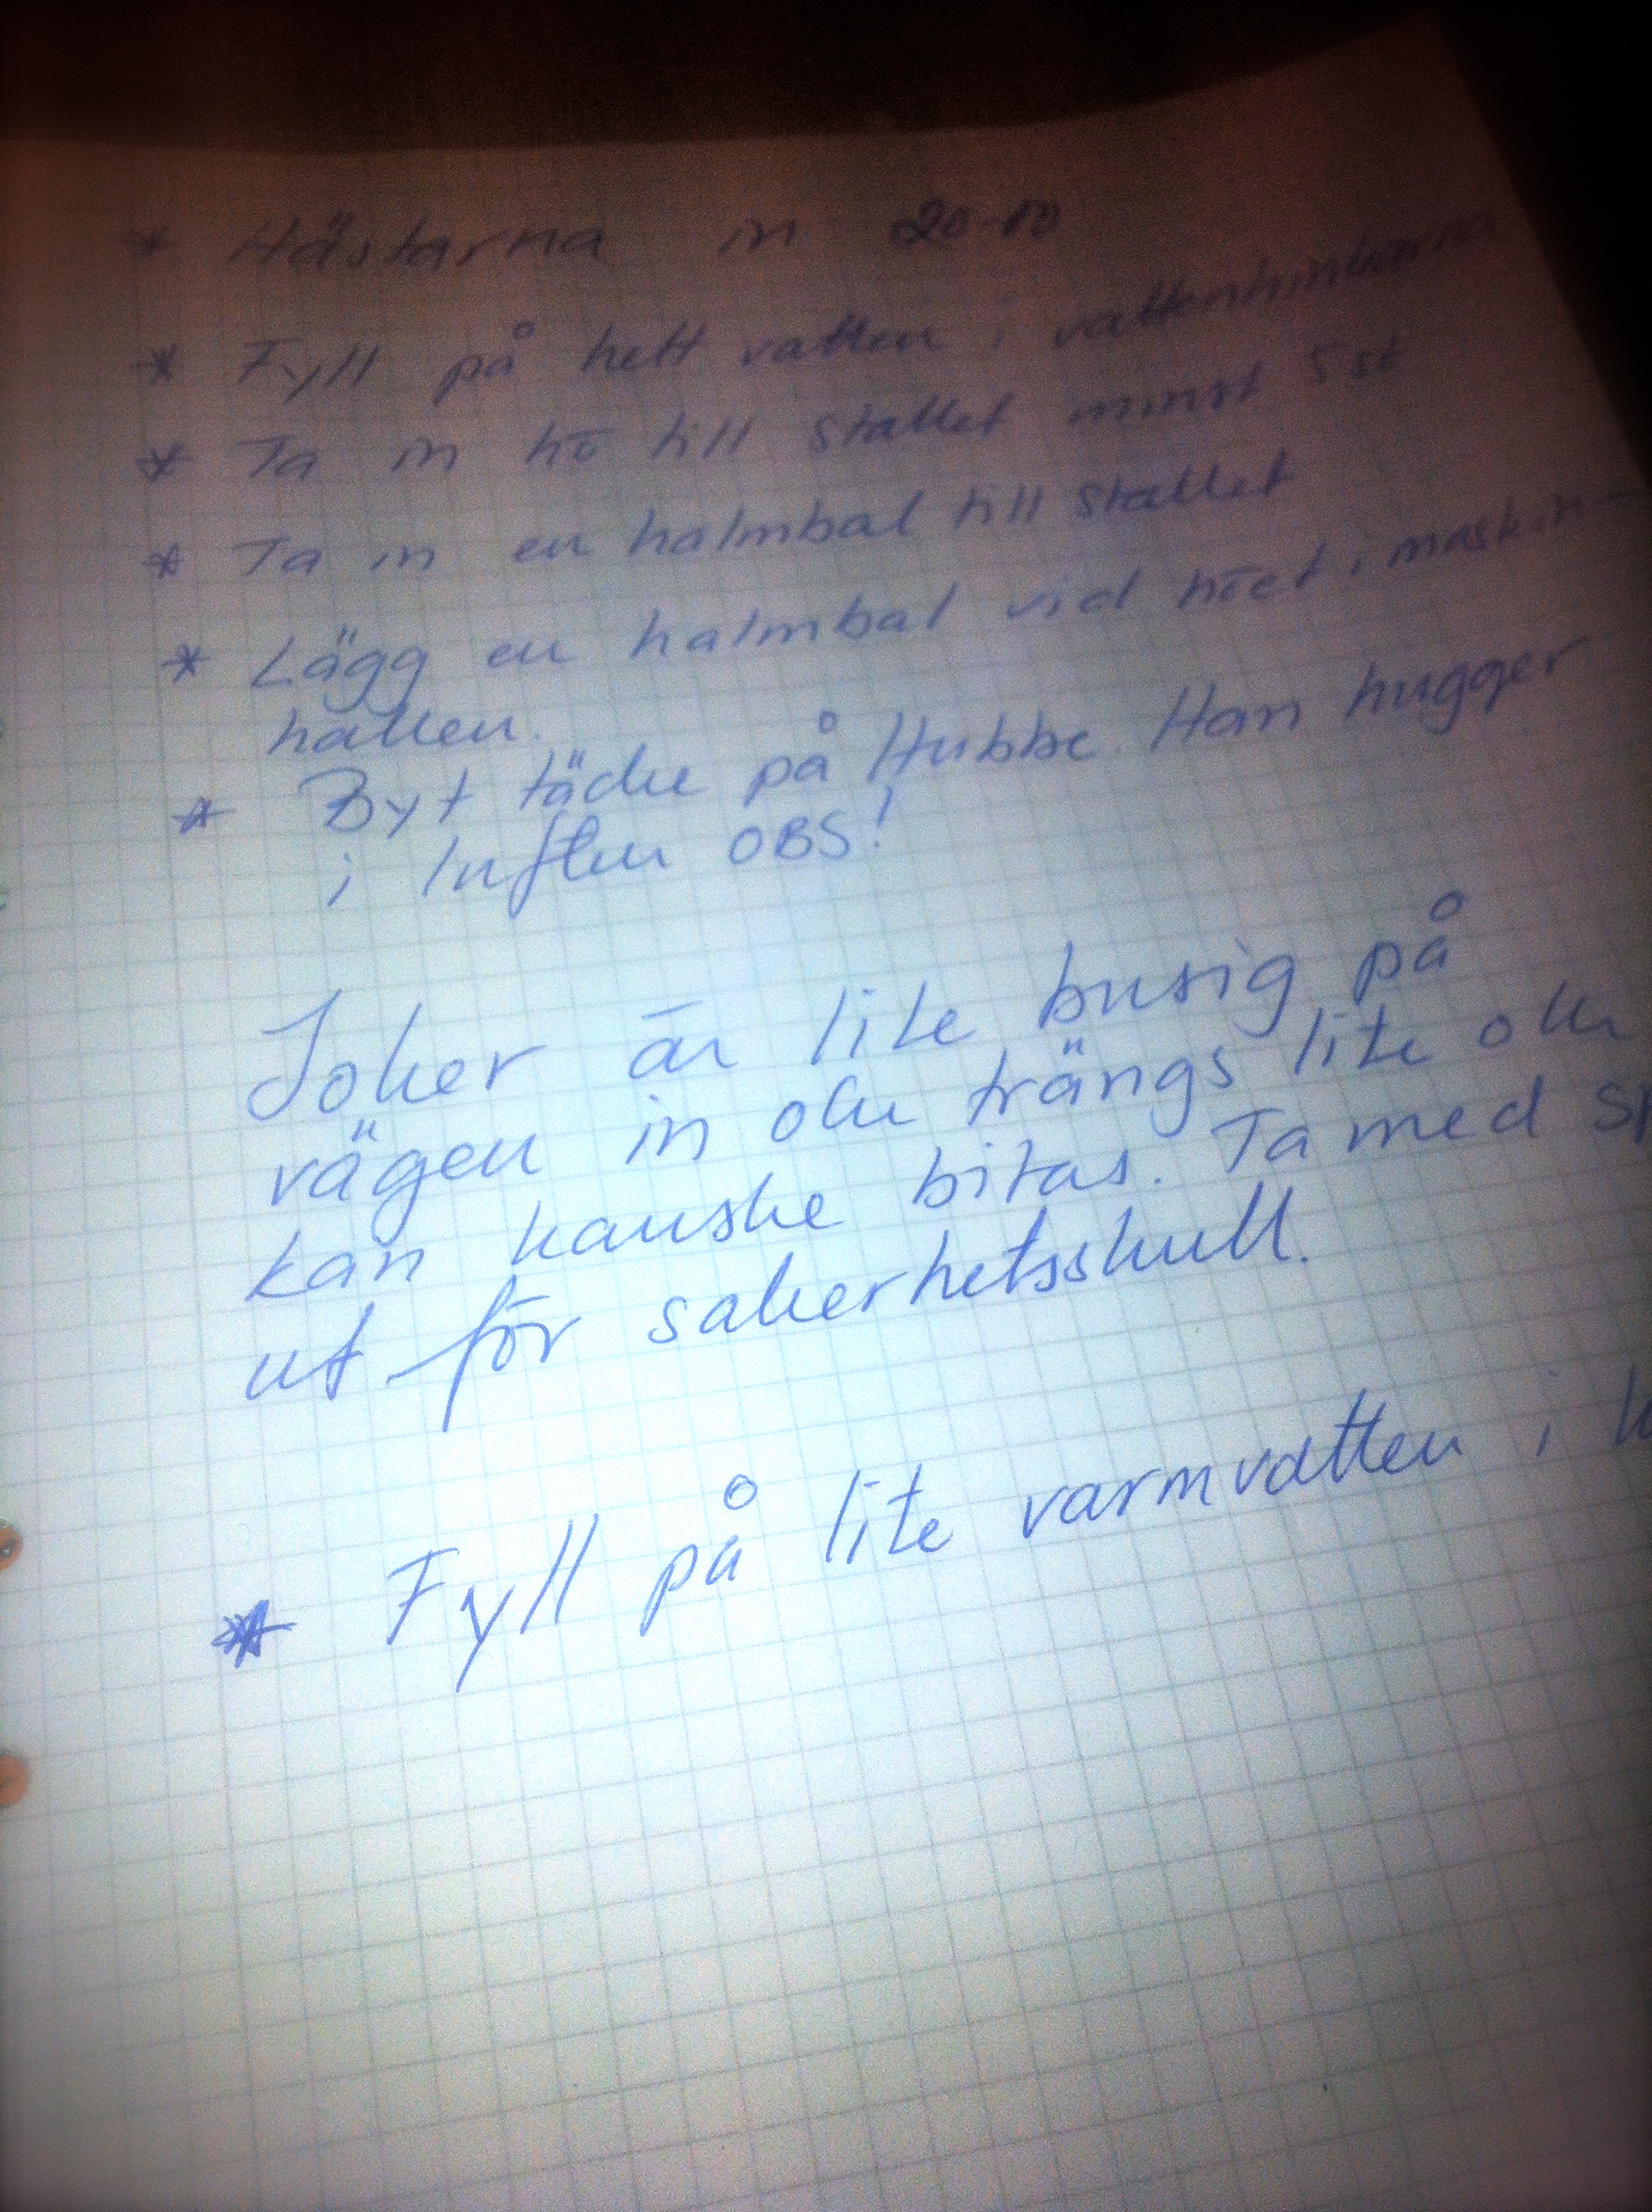 * Hästarna in 20-00
* Fyll på hett vatten i vattenhinkarna
* Ta in hö till stallet minst 5 st
* Ta in en halmbal till stallet
* Lägg en halmbal vid höet i maskin-
hallen.
* Byt täcke på Hubbe. Han hugger
i luften OBS!
Joker är lite busig på
vägen in och trängs lite och
kan kanske bitas. Ta med sp
ut för säkerhetsskull.
* Fyll på lite varmvatten i